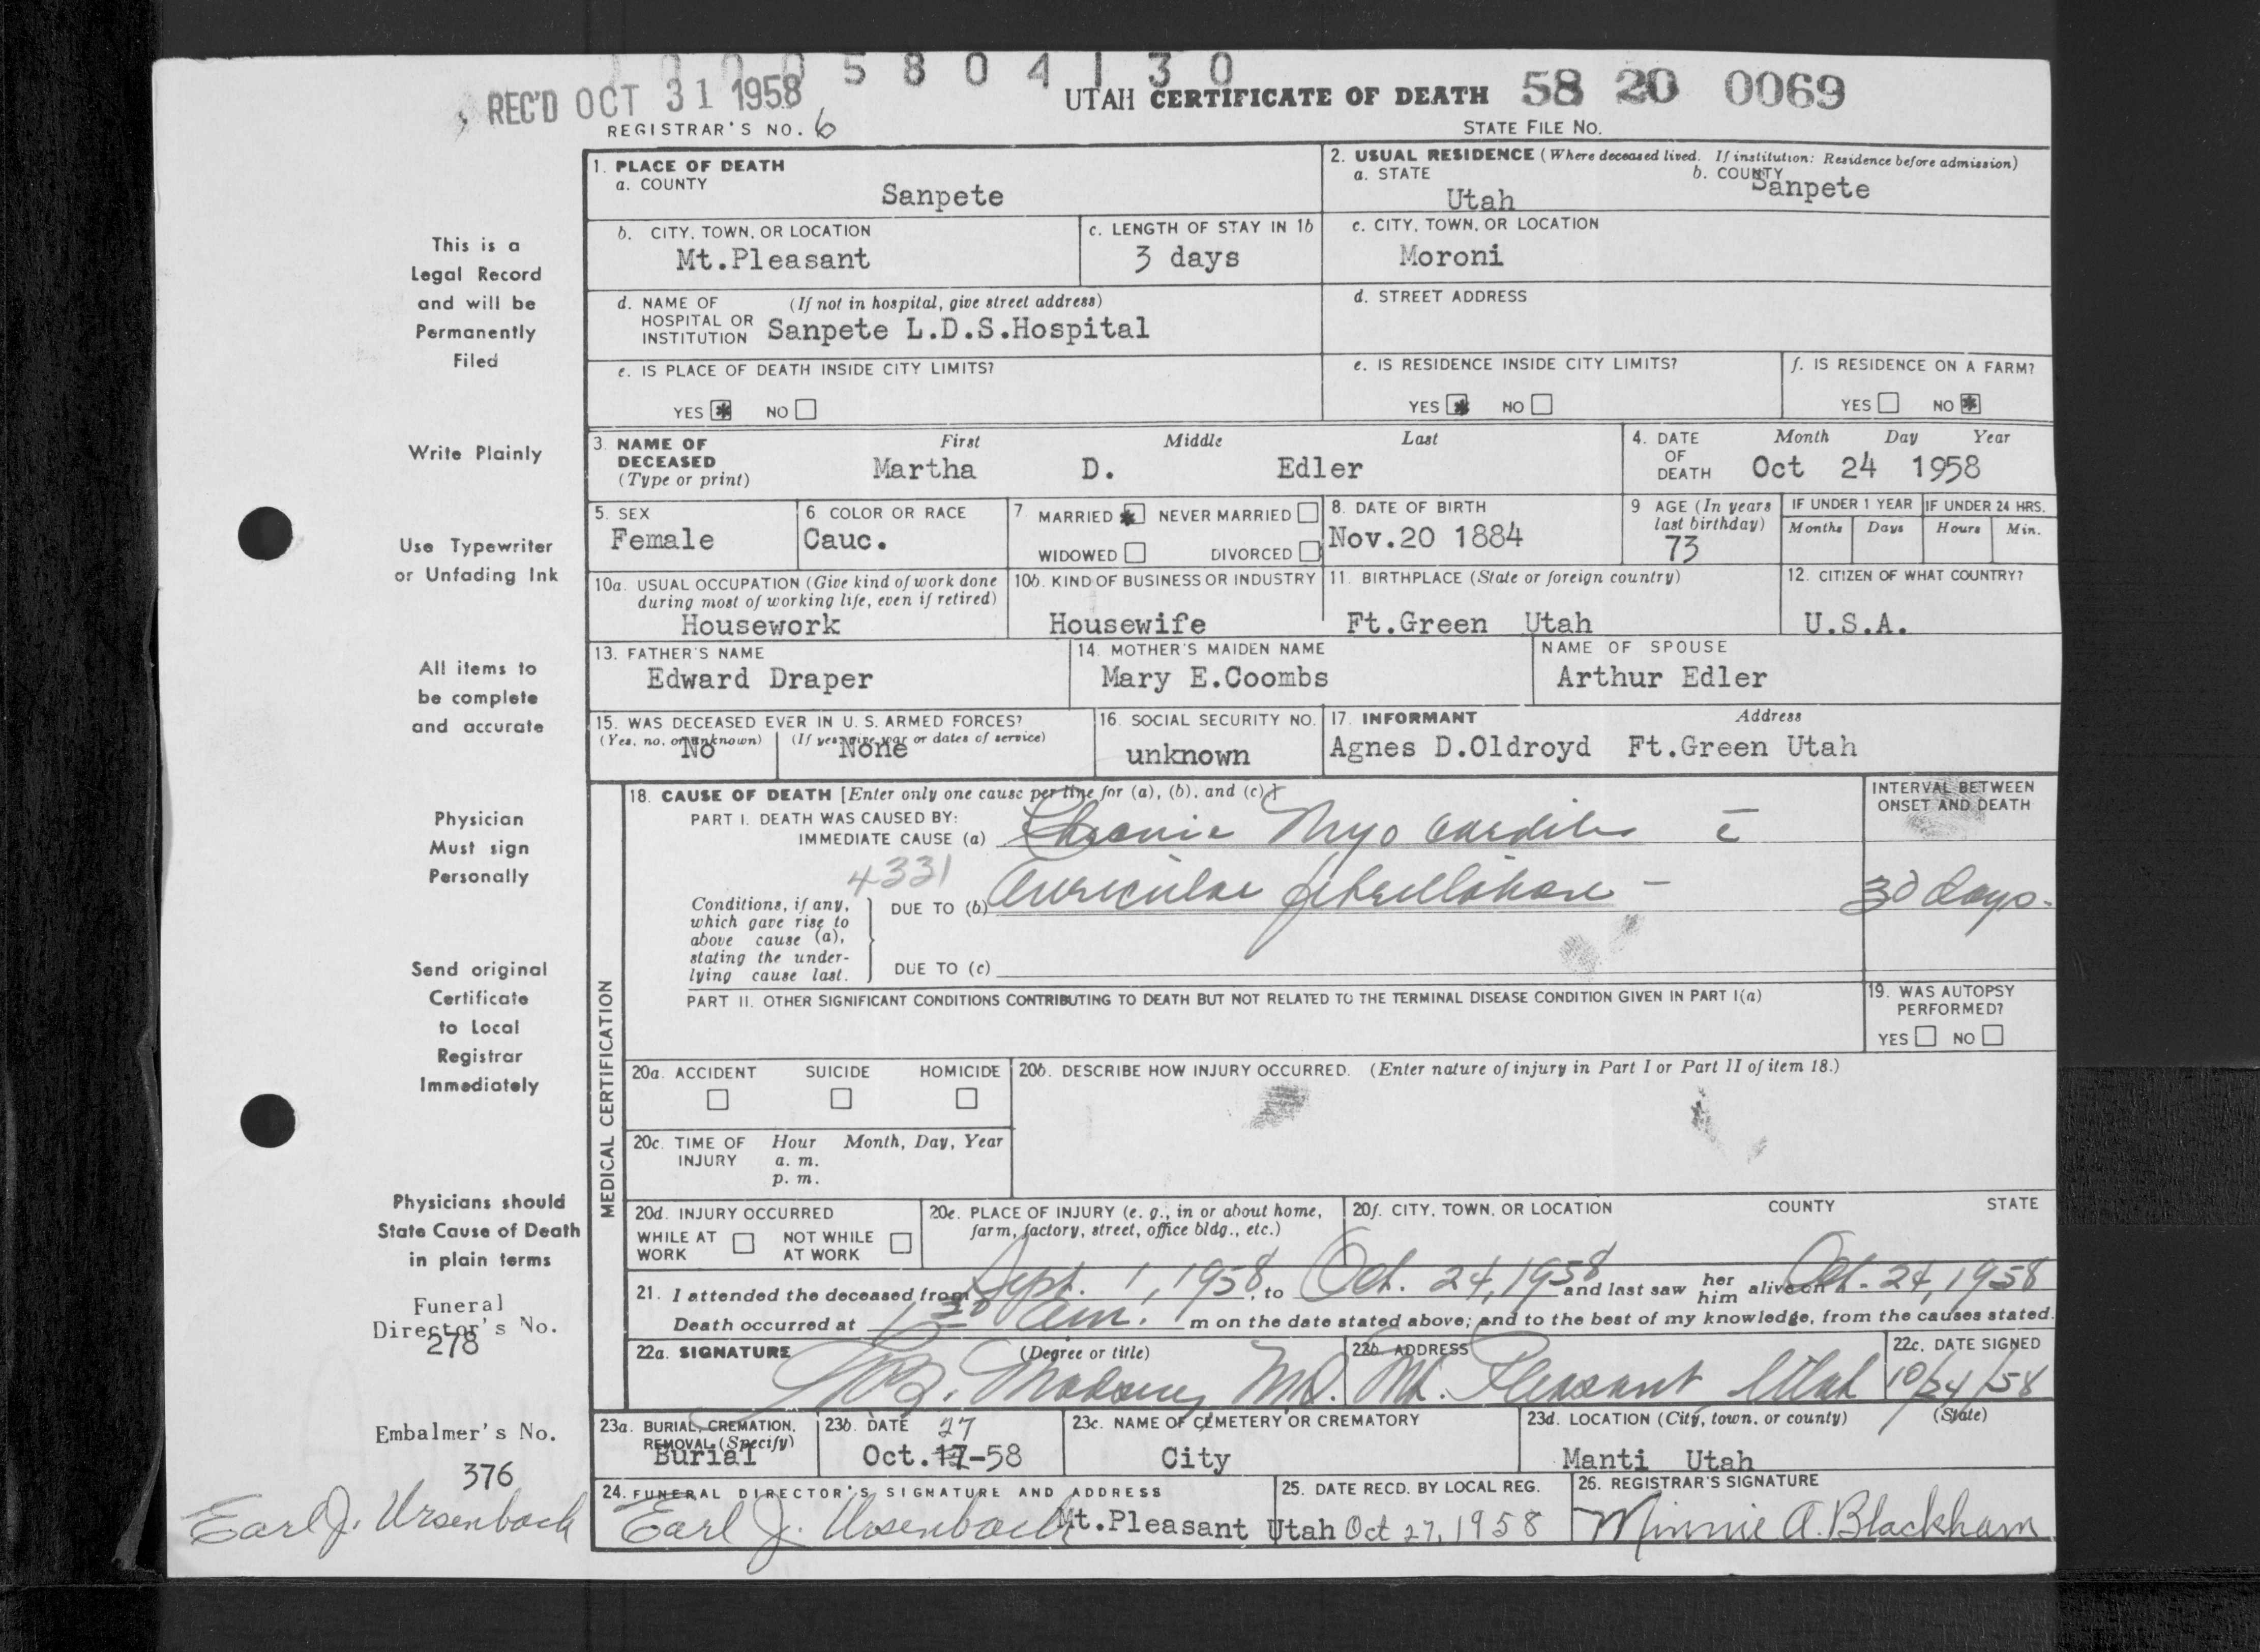 1 0 0 0 5 8 0 4 1 3 0
REC'D OCT 31 1958
UTAH CERTIFICATE OF DEATH 58 20 0069
REGISTRAR'S NO. 6
STATE FILE NO.
This is a
Legal Record
and will be
Permanently
Filed
Write Plainly
Use Typewriter
or Unfading Ink
All items to
be complete
and accurate
Physician
Must sign
Personally
Send original
Certificate
to Local
Registrar
Immediately
Physicians should
State Cause of Death
in plain terms
Funeral
Director's No.
278
Embalmer's No.
376
Earl J. Ursenbach
1. PLACE OF DEATH
a. COUNTY
Sanpete
2. USUAL RESIDENCE (Where deceased lived. If institution: Residence before admission)
a. STATE
Utah
b. COUNTY
Sanpete
b. CITY, TOWN, OR LOCATION
Mt.Pleasant
c. LENGTH OF STAY IN 1b
3 days
c. CITY, TOWN, OR LOCATION
Moroni
d. NAME OF (If not in hospital, give street address)
HOSPITAL OR
INSTITUTION Sanpete L.D.S.Hospital
d. STREET ADDRESS
e. IS PLACE OF DEATH INSIDE CITY LIMITS?
YES NO
e. IS RESIDENCE INSIDE CITY LIMITS?
YES NO
f. IS RESIDENCE ON A FARM?
YES NO
3. NAME OF
DECEASED
(Type or print)
First Middle Last
Martha D. Edler
4. DATE
OF
DEATH
Month Day Year
Oct 24 1958
5. SEX
Female
6 COLOR OR RACE
Cauc.
7 MARRIED NEVER MARRIED
WIDOWED DIVORCED
8. DATE OF BIRTH
Nov.20 1884
9 AGE (In years
last birthday)
73
IF UNDER 1 YEAR
Months Days
IF UNDER 24 HRS.
Hours Min.
10a. USUAL OCCUPATION (Give kind of work done
during most of working life, even if retired)
Housework
10b. KIND OF BUSINESS OR INDUSTRY
Housewife
11. BIRTHPLACE (State or foreign country)
Ft.Green Utah
12. CITIZEN OF WHAT COUNTRY?
U.S.A.
13. FATHER'S NAME
Edward Draper
14. MOTHER'S MAIDEN NAME
Mary E.Coombs
NAME OF SPOUSE
Arthur Edler
15. WAS DECEASED EVER IN U. S. ARMED FORCES?
(Yes, no, or unknown) (If yes, give war or dates of service)
No None
16. SOCIAL SECURITY NO.
unknown
17. INFORMANT Address
Agnes D.Oldroyd Ft.Green Utah
MEDICAL CERTIFICATION
18. CAUSE OF DEATH [Enter only one cause per line for (a), (b), and (c).]
PART I. DEATH WAS CAUSED BY:
IMMEDIATE CAUSE (a) Chronic Myo carditis c̄
4331
Conditions, if any,
which gave rise to
above cause (a),
stating the under-
lying cause last.
DUE TO (b) Auricular fibrillation -
DUE TO (c)
INTERVAL BETWEEN
ONSET AND DEATH
30 days.
PART II. OTHER SIGNIFICANT CONDITIONS CONTRIBUTING TO DEATH BUT NOT RELATED TO THE TERMINAL DISEASE CONDITION GIVEN IN PART I(a)
19. WAS AUTOPSY
PERFORMED?
YES NO
20a. ACCIDENT SUICIDE HOMICIDE
20b. DESCRIBE HOW INJURY OCCURRED. (Enter nature of injury in Part I or Part II of item 18.)
20c. TIME OF Hour Month, Day, Year
INJURY a. m.
p. m.
20d. INJURY OCCURRED
WHILE AT
WORK
NOT WHILE
AT WORK
20e. PLACE OF INJURY (e. g., in or about home,
farm, factory, street, office bldg., etc.)
20f. CITY, TOWN, OR LOCATION COUNTY STATE
21. I attended the deceased from Sept. 1, 1958, to Oct. 24, 1958 and last saw her him alive on Oct. 24, 1958
Death occurred at 1 30 am. m on the date stated above; and to the best of my knowledge, from the causes stated.
22a. SIGNATURE (Degree or title)
Madsen, MD.
22b. ADDRESS
Mt. Pleasant Utah
22c. DATE SIGNED
10/24/58
23a. BURIAL, CREMATION,
REMOVAL (Specify)
Burial
23b. DATE 27
Oct.17-58
23c. NAME OF CEMETERY OR CREMATORY
City
23d. LOCATION (City, town, or county) (State)
Manti Utah
24. FUNERAL DIRECTOR'S SIGNATURE AND ADDRESS
Earl J. Ursenbach Mt.Pleasant Utah
25. DATE RECD. BY LOCAL REG.
Oct 27, 1958
26. REGISTRAR'S SIGNATURE
Minnie A. Blackham